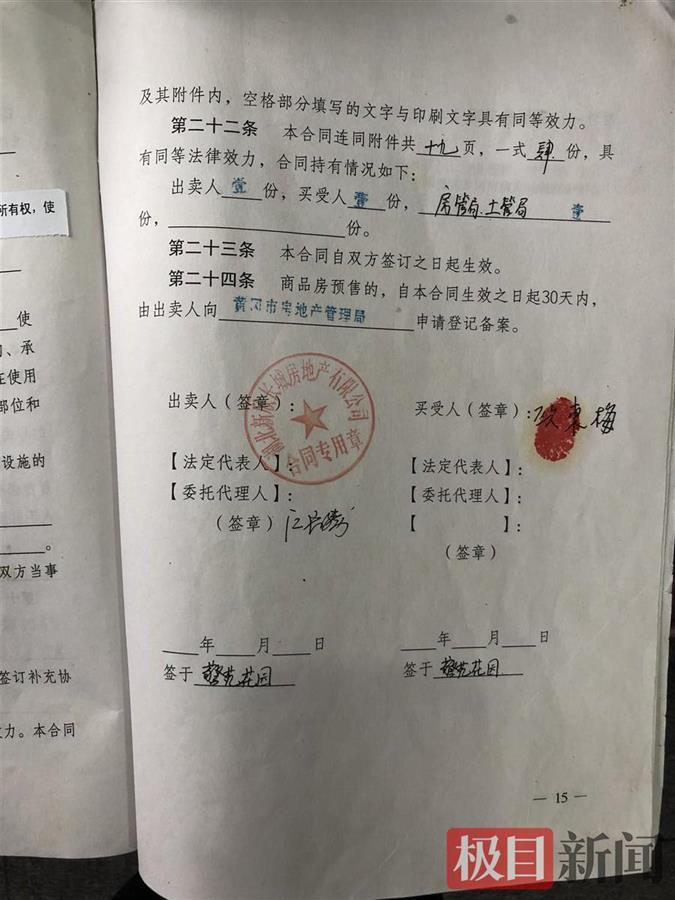 及其附件内，空格部分填写的文字与印刷文字具有同等效力。
第二十二条 本合同连同附件共十九页，一式肆份，具
有同等法律效力，合同持有情况如下：
出卖人壹份，买受人壹份，房管局.土管局 壹
份，____份。
第二十三条 本合同自双方签订之日起生效。
第二十四条 商品房预售的，自本合同生效之日起30天内，
由出卖人向黄冈市房地产管理局申请登记备案。
出卖人（签章）：
买受人（签章）：
房地产有限公司
合同专用章
【法定代表人】：
【委托代理人】：
（签章）
【法定代表人】：
【委托代理人】：
【 】：
（签章）
____年____月____日
签于 花园
____年____月____日
签于 花园
— 15 —
所有权，使
使
、承
在使用
部位和
设施的
。
双方当事
签订补充协
力。本合同
极目新闻